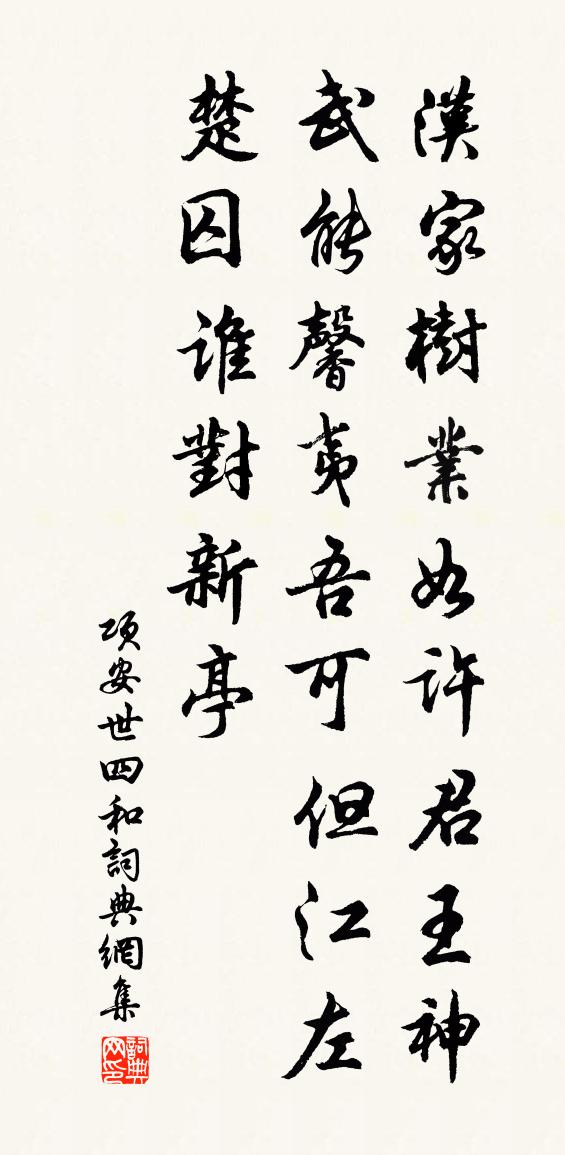 漢家樹業如許君王神
武能馨夷吾可但江左
楚囚誰對新亭
項安世四和詞典網集
詞典网印